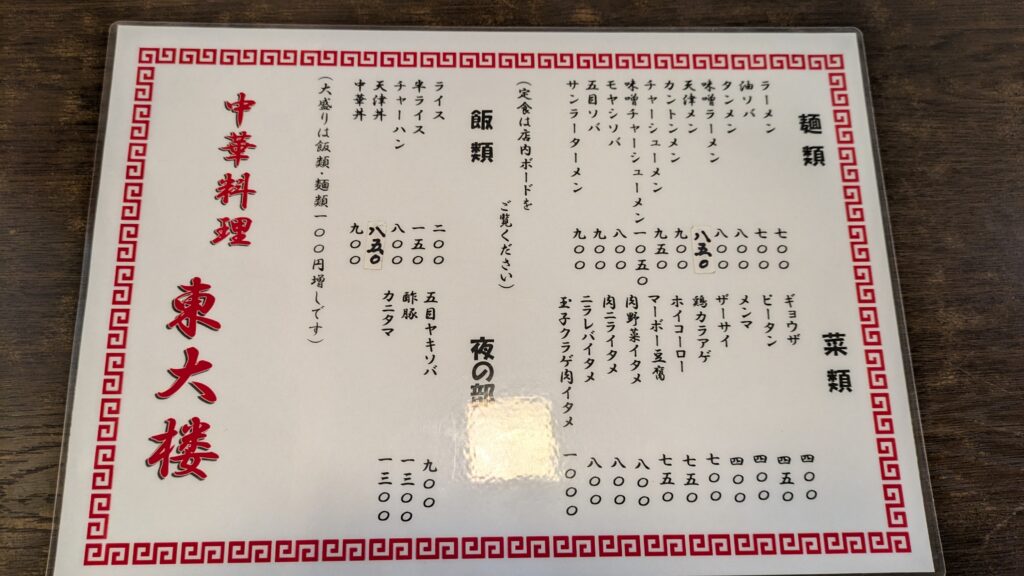 麺類
ラーメン 七〇〇
油ソバ 七〇〇
タンメン 八〇〇
味噌ラーメン 八〇〇
天津メン 八五〇
カントンメン 九〇〇
チャーシューメン 九五〇
味噌チャーシューメン 一〇五〇
モヤシソバ 八〇〇
五目ソバ 九〇〇
サンラーターメン 九〇〇
(定食は店内ボードを
ご覧ください)
飯類
ライス 二〇〇
半ライス 一五〇
チャーハン 八〇〇
天津丼 八五〇
中華丼 九〇〇
(大盛りは飯類・麺類一〇〇円増しです)
菜類
ギョウザ 四〇〇
ピータン 四五〇
メンマ 四〇〇
ザーサイ 四〇〇
鶏カラアゲ 七〇〇
ホイコーロー 七五〇
マーボー豆腐 七五〇
肉野菜イタメ 八〇〇
肉ニライタメ 八〇〇
ニラレバイタメ 八〇〇
玉子クラゲ肉イタメ 一〇〇〇
夜の部
五目ヤキソバ 九〇〇
酢豚 一三〇〇
カニタマ 一三〇〇
中華料理 東大楼